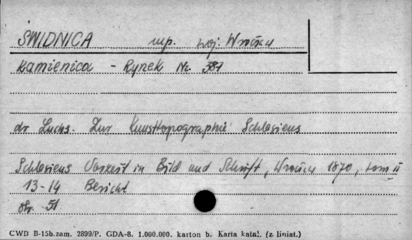 ŚWIDNICA mp. woj. Wrocław
Kamienica - Rynek Nr. 381
dr. Luchs. Zur Kunsttopographie Schlesiens
Schlesiens Vorzeit in Bild und Schrift, Wrocław 1870, tom II
13-14 Bericht
str. 51
CWD B-15b. zam. 2899/P. GDA-8. 1.000.000. karton b. Karta katal. (z liniat.)